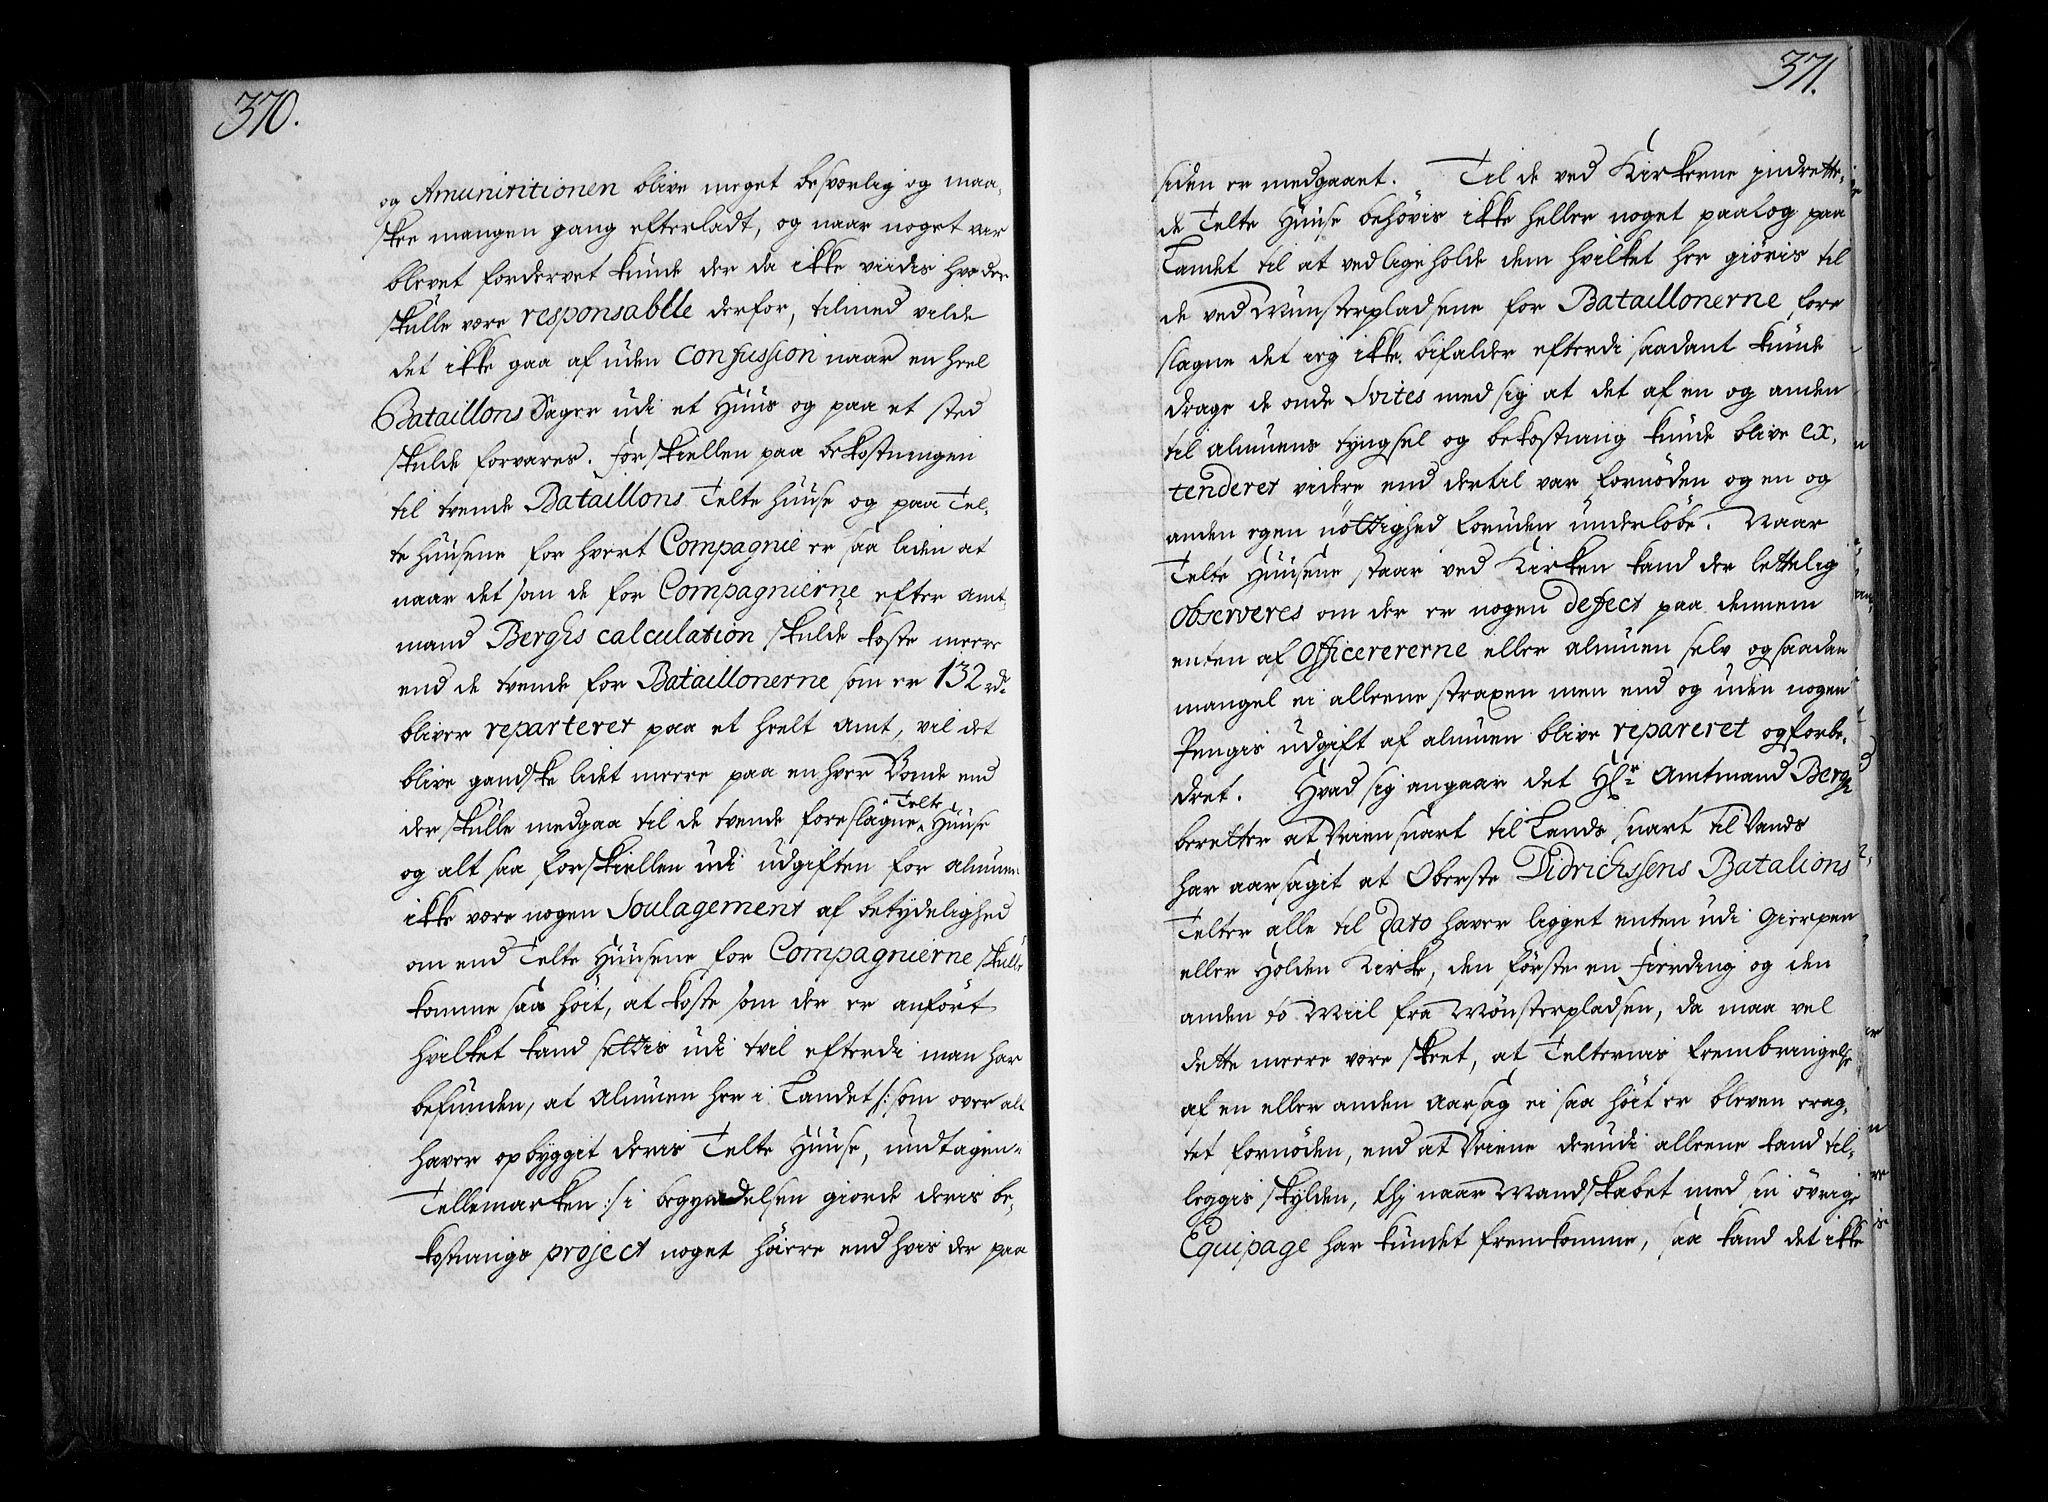 370.
og Amunititionen blive meget besværlig og maa-
skee mangen gang efterladt, og naar noget var
blevet fordervet kunde der da ikke viidis hvo der
skulle være responsable derfor, tilmed vilde
det ikke gaa af uden confussion naar en heel
Bataillons Sager udi et Huus og paa et sted
skulde forvares. Forskiellen paa bekostningen
til tvende Bataillons Telte Huuse og paa Tel-
te Huusene for hvert Compagnie er saa liden at
naar det som de for Compagnierne efter Amt-
mand Berghs calculation skulde koste meere
end de tvende for Bataillonerne som er 132 rdr
bliver reparteret paa et heelt Amt, vil det
blive gandske lidet meere paa en hver Bonde end
der skulle medgaa til de tvende foreslagne Telte Huuse
og alt saa forskiellen udi udgiften for almuen
ikke være nogen Soulagement af betydelighed
om end Telte Huusene for Compagnierne skulle
komme saa høit, at koste som der er anført
hvilket kand settis udi tvil efterdi man har
befunden, at Almuen her i Landet /: som over alt
haver opbyggit deris Telte Huuse, undtagen i
Tellemarken :/ i begyndelsen giorde deris be-
kostnings project noget høiere end hvis der paa
371.
siden er medgaaet. Til de ved Kirkerne indrette-
de Telte Huuse behøvis ikke heller noget paalog paa
Landet til at vedligeholde dem hvilket her giøris til
de ved Mynsterpladsene for Bataillonerne fore
slagne det ieg ikke bifalder efterdi saadant kunde
drage de onde Svites med sig at det af en og anden
til almuens tyngsel og bekostning kunde blive ex-
tenderet videre end dertil var fornøden og en og
anden egen nøttighed foruden underløbe. Naar
Telte Huusene staar ved Kirken kand der lettelig
observeres om der er nogen defect paa dennem
enten af Officererne eller almuen selv og saadan
mangel ei alleene straxen men end og uden nogen
Pengis udgift af almuen blive repareret og forbe-
dret. Hvad sig angaar det Hr. Amtmand Bergh
beretter at Veien snart til Lands snart til Vands
har aarsagit at Oberste Didrichssens Batalions
Telter alle til dato haver ligget enten udi Gierpen
eller Holden Kirke, den første en Fierding og den
anden to Miil fra Mønsterpladsen, da maa vel
dette meere være skeet, at Telternis frembringelse
af en eller anden Aarsag ei saa høit er bleven erag-
tet fornøden, end at Veiene derudi alleene kand til-
leggis skylden, thj naar Mandskabet med sin øvrige
Equipage har kundet fremkomme, saa kand det ikke